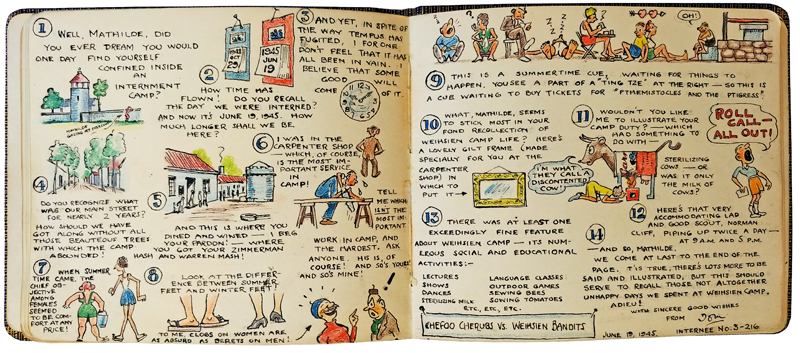 1
WELL, MATHILDE, DID
YOU EVER DREAM YOU WOULD
ONE DAY FIND YOURSELF
CONFINED INSIDE
AN
INTERNMENT
CAMP?
2
1945
JUN
19
HOW TIME HAS
FLOWN! DO YOU RECALL
THE DAY WE WERE INTERNED?
AND NOW ITS JUNE 19, 1945. HOW
MUCH LONGER SHALL WE BE
HERE?
3
AND YET, IN SPITE OF
THE WAY TEMPUS HAS
FUGITED, I FOR ONE
DON'T FEEL THAT IT HAS
ALL BEEN IN VAIN. I
BELIEVE THAT SOME
GOOD WILL
COME OF IT.
4
DO YOU RECOGNIZE WHAT
WAS OUR MAIN STREET
FOR NEARLY 2 YEARS?
HOW SHOULD WE HAVE
GOT ALONG WITHOUT ALL
THOSE BEAUTEOUS TREES
WITH WHICH THE CAMP
ABOUNDED!
5
AND THIS IS WHERE YOU
DINED AND WINED — I BEG
YOUR PARDON! — WHERE
YOU GOT YOUR ZIMMERMAN
HASH AND WARREN MASH!
6
I WAS IN THE
CARPENTER SHOP
— WHICH, OF COURSE,
IS THE MOST IM-
PORTANT SERVICE
IN
CAMP!
TELL
ME WHICH
ISNT THE
MOST IM-
PORTANT
WORK IN CAMP, AND
THE HARDEST. ASK
ANYONE. HIS IS, OF
COURSE! AND SO'S YOURS!
AND SO'S MINE!
7
WHEN SUMMER
TIME CAME, THE
CHIEF OB-
JECTIVE
AMONG
FEMALES
SEEMED
TO BE COM-
FORT AT ANY
PRICE!
8
LOOK AT THE DIFFER-
ENCE BETWEEN SUMMER
FEET AND WINTER FEET!
TO ME, CLOGS ON WOMEN ARE
AS ABSURD AS BERETS ON MEN!
OH!
9
THIS IS A SUMMERTIME CUE, WAITING FOR THINGS TO
HAPPEN. YOU SEE A PART OF A "TING TZE" AT THE RIGHT — SO THIS IS
A CUE WAITING TO BUY TICKETS FOR "PTHEMISTOCLES AND THE PTIGRESS"
10
WHAT, MATHILDE, SEEMS
TO STICK MOST IN YOUR
FOND RECOLLECTION OF
WEIHSIEN CAMP LIFE? HERE'S
A LOVELY GILT FRAME (MADE
SPECIALLY FOR YOU AT THE
CARPENTER
SHOP) IN
WHICH TO
PUT IT →
11
WOULDN'T YOU LIKE
ME TO ILLUSTRATE YOUR
CAMP DUTY? — WHICH
HAD SOMETHING TO
DO WITH —
I'M WHAT
THEY CALL A
DISCONTENTED
COW!
STERILIZING
COWS — OR
WAS IT ONLY
THE MILK OF
COWS?
ROLL
CALL —
ALL OUT!
12
HERE'S THAT VERY
ACCOMMODATING LAD
AND GOOD SCOUT, NORMAN
CLIFF, PIPING UP TWICE A DAY —
AT 9 A.M. AND 5 P.M.
13
THERE WAS AT LEAST ONE
EXCEEDINGLY FINE FEATURE
ABOUT WEIHSIEN CAMP — ITS NUM-
EROUS SOCIAL AND EDUCATIONAL
ACTIVITIES:-
LECTURES LANGUAGE CLASSES
SHOWS OUTDOOR GAMES
DANCES SEWING BEES
STERILIZING MILK SOWING TOMATOES
ETC, ETC, ETC.
CHEFOO CHERUBS VS. WEIHSIEN BANDITS
14
— AND SO, MATHILDE,
WE COME AT LAST TO THE END OF THE
PAGE. IT'S TRUE, THERE'S LOTS MORE TO BE
SAID AND ILLUSTRATED, BUT THIS SHOULD
SERVE TO RECALL THOSE NOT ALTOGETHER
UNHAPPY DAYS WE SPENT AT WEIHSIEN CAMP.
ADIEU!
WITH SINCERE GOOD WISHES
FROM
JUNE 19, 1945. INTERNEE NO. 3-216